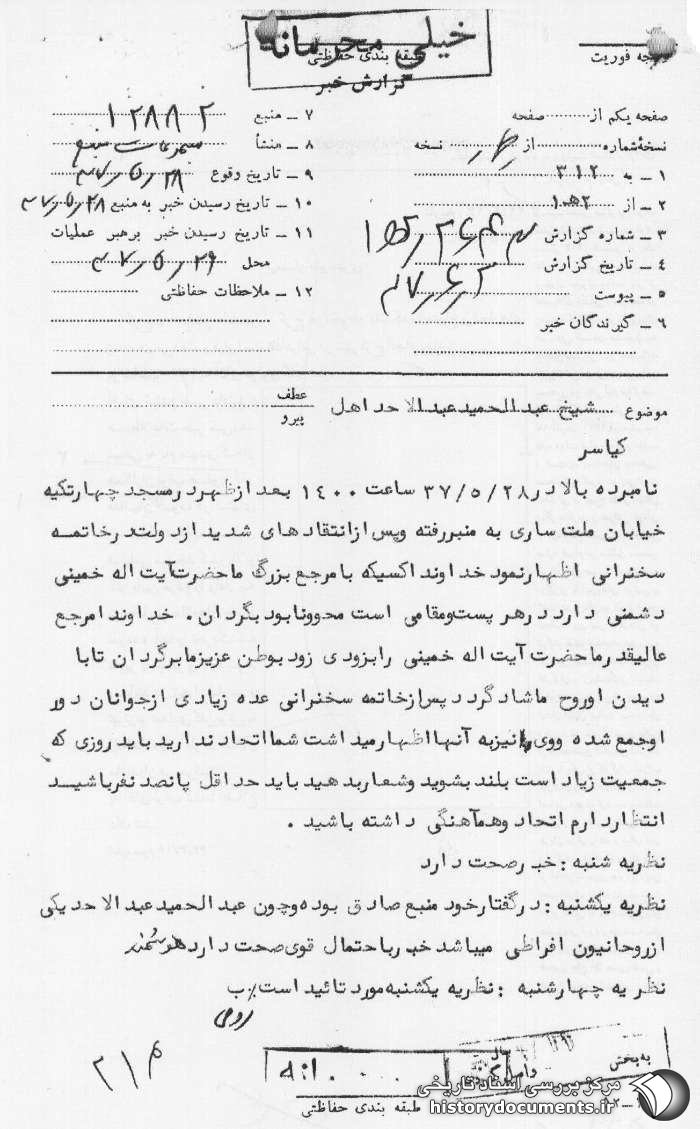 خیلی محرمانه
طبقه بندی حفاظتی
درجه فوریت
گزارش خبر
صفحه یکم از صفحه
نسخهٔ شماره از نسخه
۱ ـ به ۳۱۲
۲ ـ از ۲ﻫ۱
۳ ـ شماره گزارش
۴ ـ تاریخ گزارش ۳۷٫۶٫۲
۵ ـ پیوست
۶ ـ گیرندگان خبر
۷ ـ منبع ۱۲۸۸۲
۸ ـ منشأ
۹ ـ تاریخ وقوع ۳۷٫۵٫۲۸
۱۰ ـ تاریخ رسیدن خبر به منبع ۳۷٫۵٫۲۸
۱۱ ـ تاریخ رسیدن خبر برهبر عملیات
محل ۳۷٫۵٫۲۹
۱۲ ـ ملاحظات حفاظتی
موضوع شیخ عبدالحمید عبدالاحد اهل
کیاسر
عطف
پیرو
نامبرده بالا در ۳۷/۵/۲۸ ساعت ۱۴۰۰ بعد ازظهر در مسجد چهارتکیه
خیابان ملت ساری به منبر رفته وپس از انتقادهای شدید از دولت در خاتمه
سخنرانی اظهار نمود خداوندا کسیکه با مرجع بزرگ ما حضرت آیت اله خمینی
دشمنی دارد در هر پست ومقامی است محوونابود بگردان . خداوندا مرجع
عالیقدر ما حضرت آیت اله خمینی را بزودی زود بوطن عزیز ما برگردان تا با
دیدن او روح ما شاد گردد پس از خاتمه سخنرانی عده زیادی از جوانان دور
او جمع شده ووی نیز به آنها اظهار میداشت شما اتحاد ندارید باید روزی که
جمعیت زیاد است بلند بشوید وشعار بدهید باید حداقل پانصد نفر باشید
انتظار دارم اتحاد وهمآهنگی داشته باشید .
نظریه شنبه : خبر صحت دارد
نظریه یکشنبه : در گفتار خود منبع صادق بوده وچون عبدالحمید عبدالاحد یکی
از روحانیون افراطی میباشد خبر باحتمال قوی صحت دارد هوشمند
نظریه چهارشنبه : نظریه یکشنبه مورد تائید است٪ ب
به بخش
طبقه بندی حفاظتی
مرکز بررسی اسناد تاریخی
historydocuments.ir